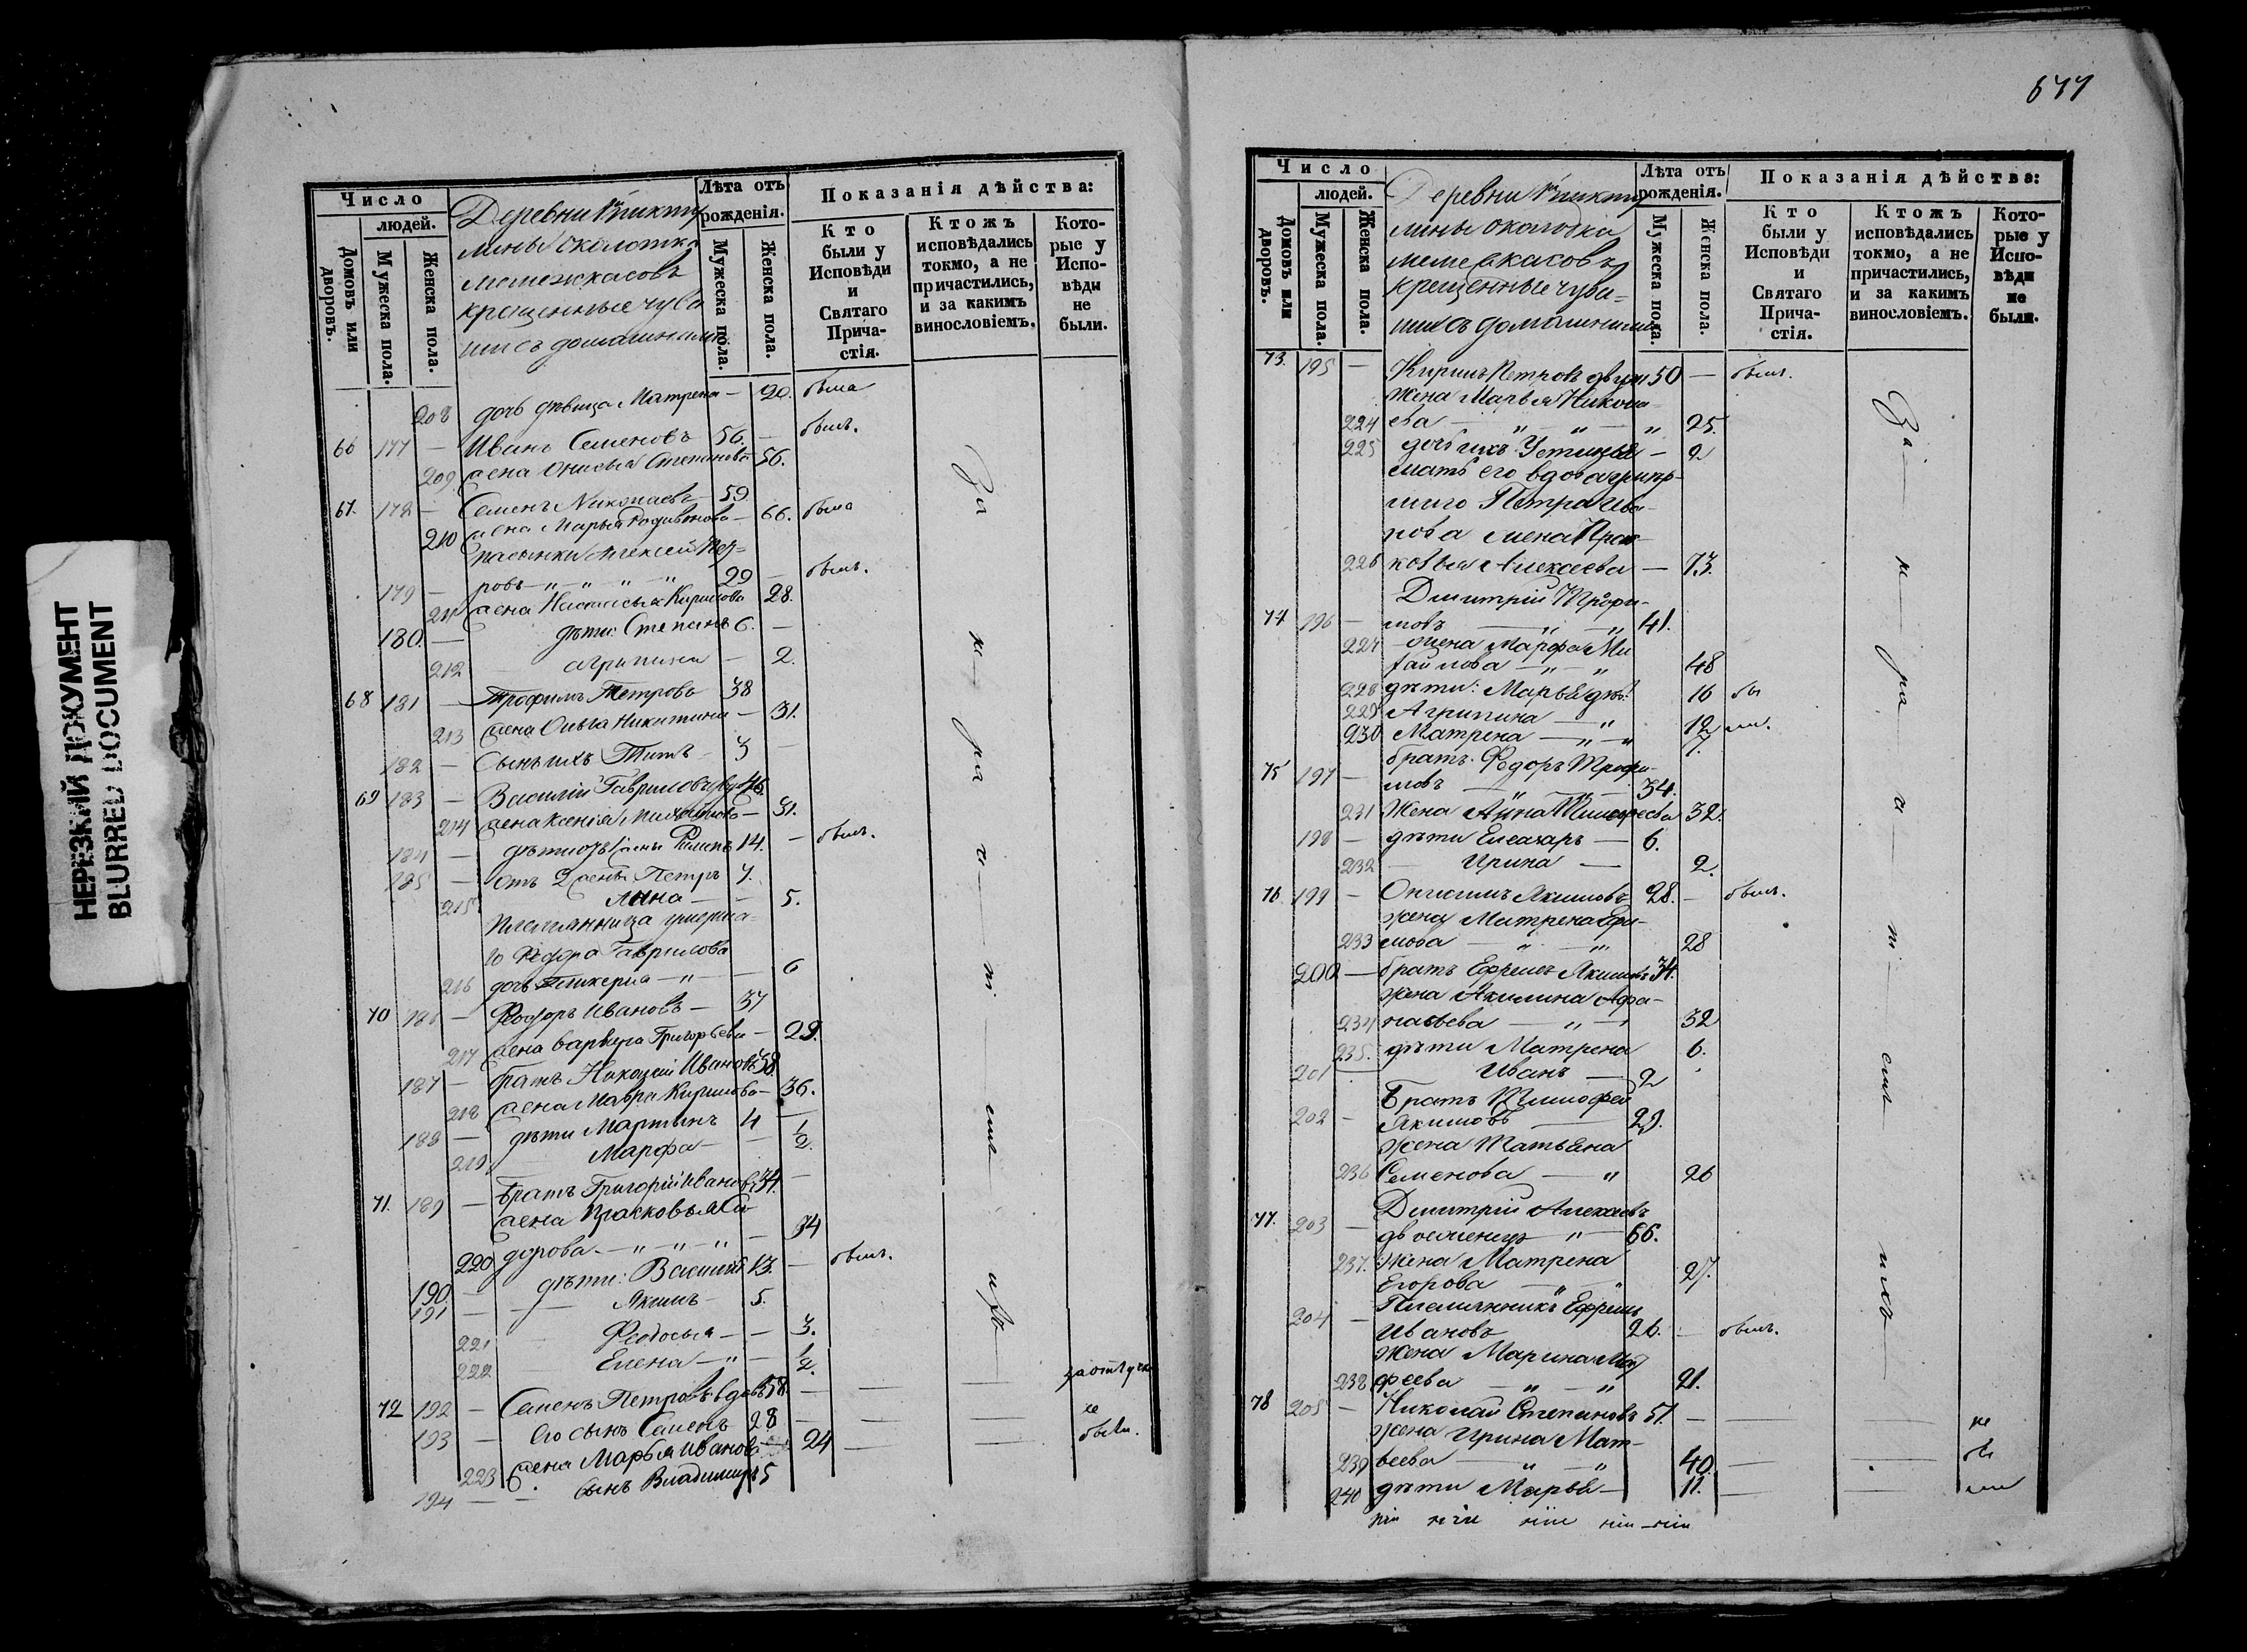 НЕРЕЗКИЙ ДОКУМЕНТ
BLURRED DOCUMENT
Число
людей.
Домовъ или дворовъ.
Мужеска пола.
Женска пола.
Деревни
околотка
крещенные чува
ши съ домашними
Лѣта отъ рожденія.
Мужеска пола.
Женска пола.
Показанія дѣйства:
Кто были у Исповѣди и Святаго Причастія.
Ктожъ исповѣдались токмо, а не причастились, и за какимъ винословіемъ.
Которые у Исповѣди не были.
208 дочь дѣвица Матрена — 20. была
66 177 — Иванъ Семеновъ 56. — былъ.
209 жена Онисья Степанова 56.
67. 178 — Семенъ Николаевъ 59
210 жена Марья Родивонова — 66. была
пасынки Алексей Пет=
179 — ровъ — " — " — " 29 — былъ.
211 жена Настасья Кирилова 28.
180. — дѣти: Степанъ 6. —
212 Агрипина — 2.
68 181 — Трофимъ Петровъ 38
213 жена Ольга Никитина — 31.
182 — Сынъ ихъ Титъ — 3 —
69 183 — Василій Гавриловъ 46.
214 жена Ксенія Михайлова — 31.
184 — дѣти отъ жены 14. — былъ.
185 — отъ 2 жены Петръ 7.
215 Анна — — 5.
племянница умерша=
го Федора Гаврилова
216 дочь Гликерия — " — 6
70 186 — Федоръ Ивановъ — 37
217 жена Варвара Григорьева — 29.
187 — братъ Николай Ивановъ 38.
218 жена Мавра Кирилова — 36.
188 — дѣти Мартынъ 4 —
219 Марфа — — 1/2.
71. 189 — братъ Григорій Ивановъ 34. —
жена Прасковья Си
220 дорова — " — " — " — 34
190. — дѣти: Василій 13. — былъ.
191 — — Якимъ — 5.
221 Феодосья — — 3.
222 Елена — " — 1/2.
72 192 — Семенъ Петровъ вдовъ 58. — — — за отлучк
193 — Его сынъ Семенъ 28 — — — не
223 жена Марья Иванова — 24 — — были.
194 — — сынъ Владимиръ 5
За — не — ра — ч — ні — емъ — ихъ
677
Число
людей.
Домовъ или дворовъ.
Мужеска пола.
Женска пола.
Деревни
околодка
крещенные чува=
ши съ домашними
Лѣта отъ рожденія.
Мужеска пола.
Женска пола.
Показанія дѣйства:
Кто были у Исповѣди и Святаго Причастія.
Ктожъ исповѣдались токмо, а не причастились, и за какимъ винословіемъ.
Которые у Исповѣди не были.
73. 195 — Кирилъ Петровъ 50 — былъ.
Жена Марья Никола
224 ева — " — " — " 25.
225 дочь ихъ Устинья — 2
мать его вдова
шаго Петра Ива
нова жена Прас
226 ковья Алексеева — 73.
Дмитрій Трофи-
74 196 — мовъ — " — " 41.
227 жена Марфа Ми
хайлова — " — " 48
228 дѣти: Марья дѣв. 16 бы
229 Агрипина — " 12 ли.
230 Матрена — " — " 7.
братъ Федоръ Трофи-
75 197 — мовъ — " — 34.
231 Жена Анна Тимофеева 32.
198 — дѣти Елеазаръ — 6.
232 — Ирина — 2.
76 199 — Онисимъ Якимовъ 28. — былъ.
жена Матрена Ефи-
233 мова — " — " 28
200 — братъ Ефремъ Якимовъ 34.
жена Акилина Афа-
234 насьева — " — " 32
235. дѣти Матрена 6.
201 Иванъ — 2
Братъ Тимофей
202 — Якимовъ — 29.
жена Татьяна
236 Семенова — " 26
Дмитрій Алексеевъ
77. 203 — двоеженецъ " 66.
237. жена Матрена
Егорова — " — " 27.
Племянникъ Ефремъ
204 — Ивановъ 26. — былъ.
жена Марина Мат
238 феева — " — " 21.
78 205 — Николай Степановъ 51. — — — не
жена Ирина Мат-
239 веева — " — " 40. — — бы
240 дѣти Марья — 11. — — ли
За — не — ра — ч — ні — емъ — ихъ